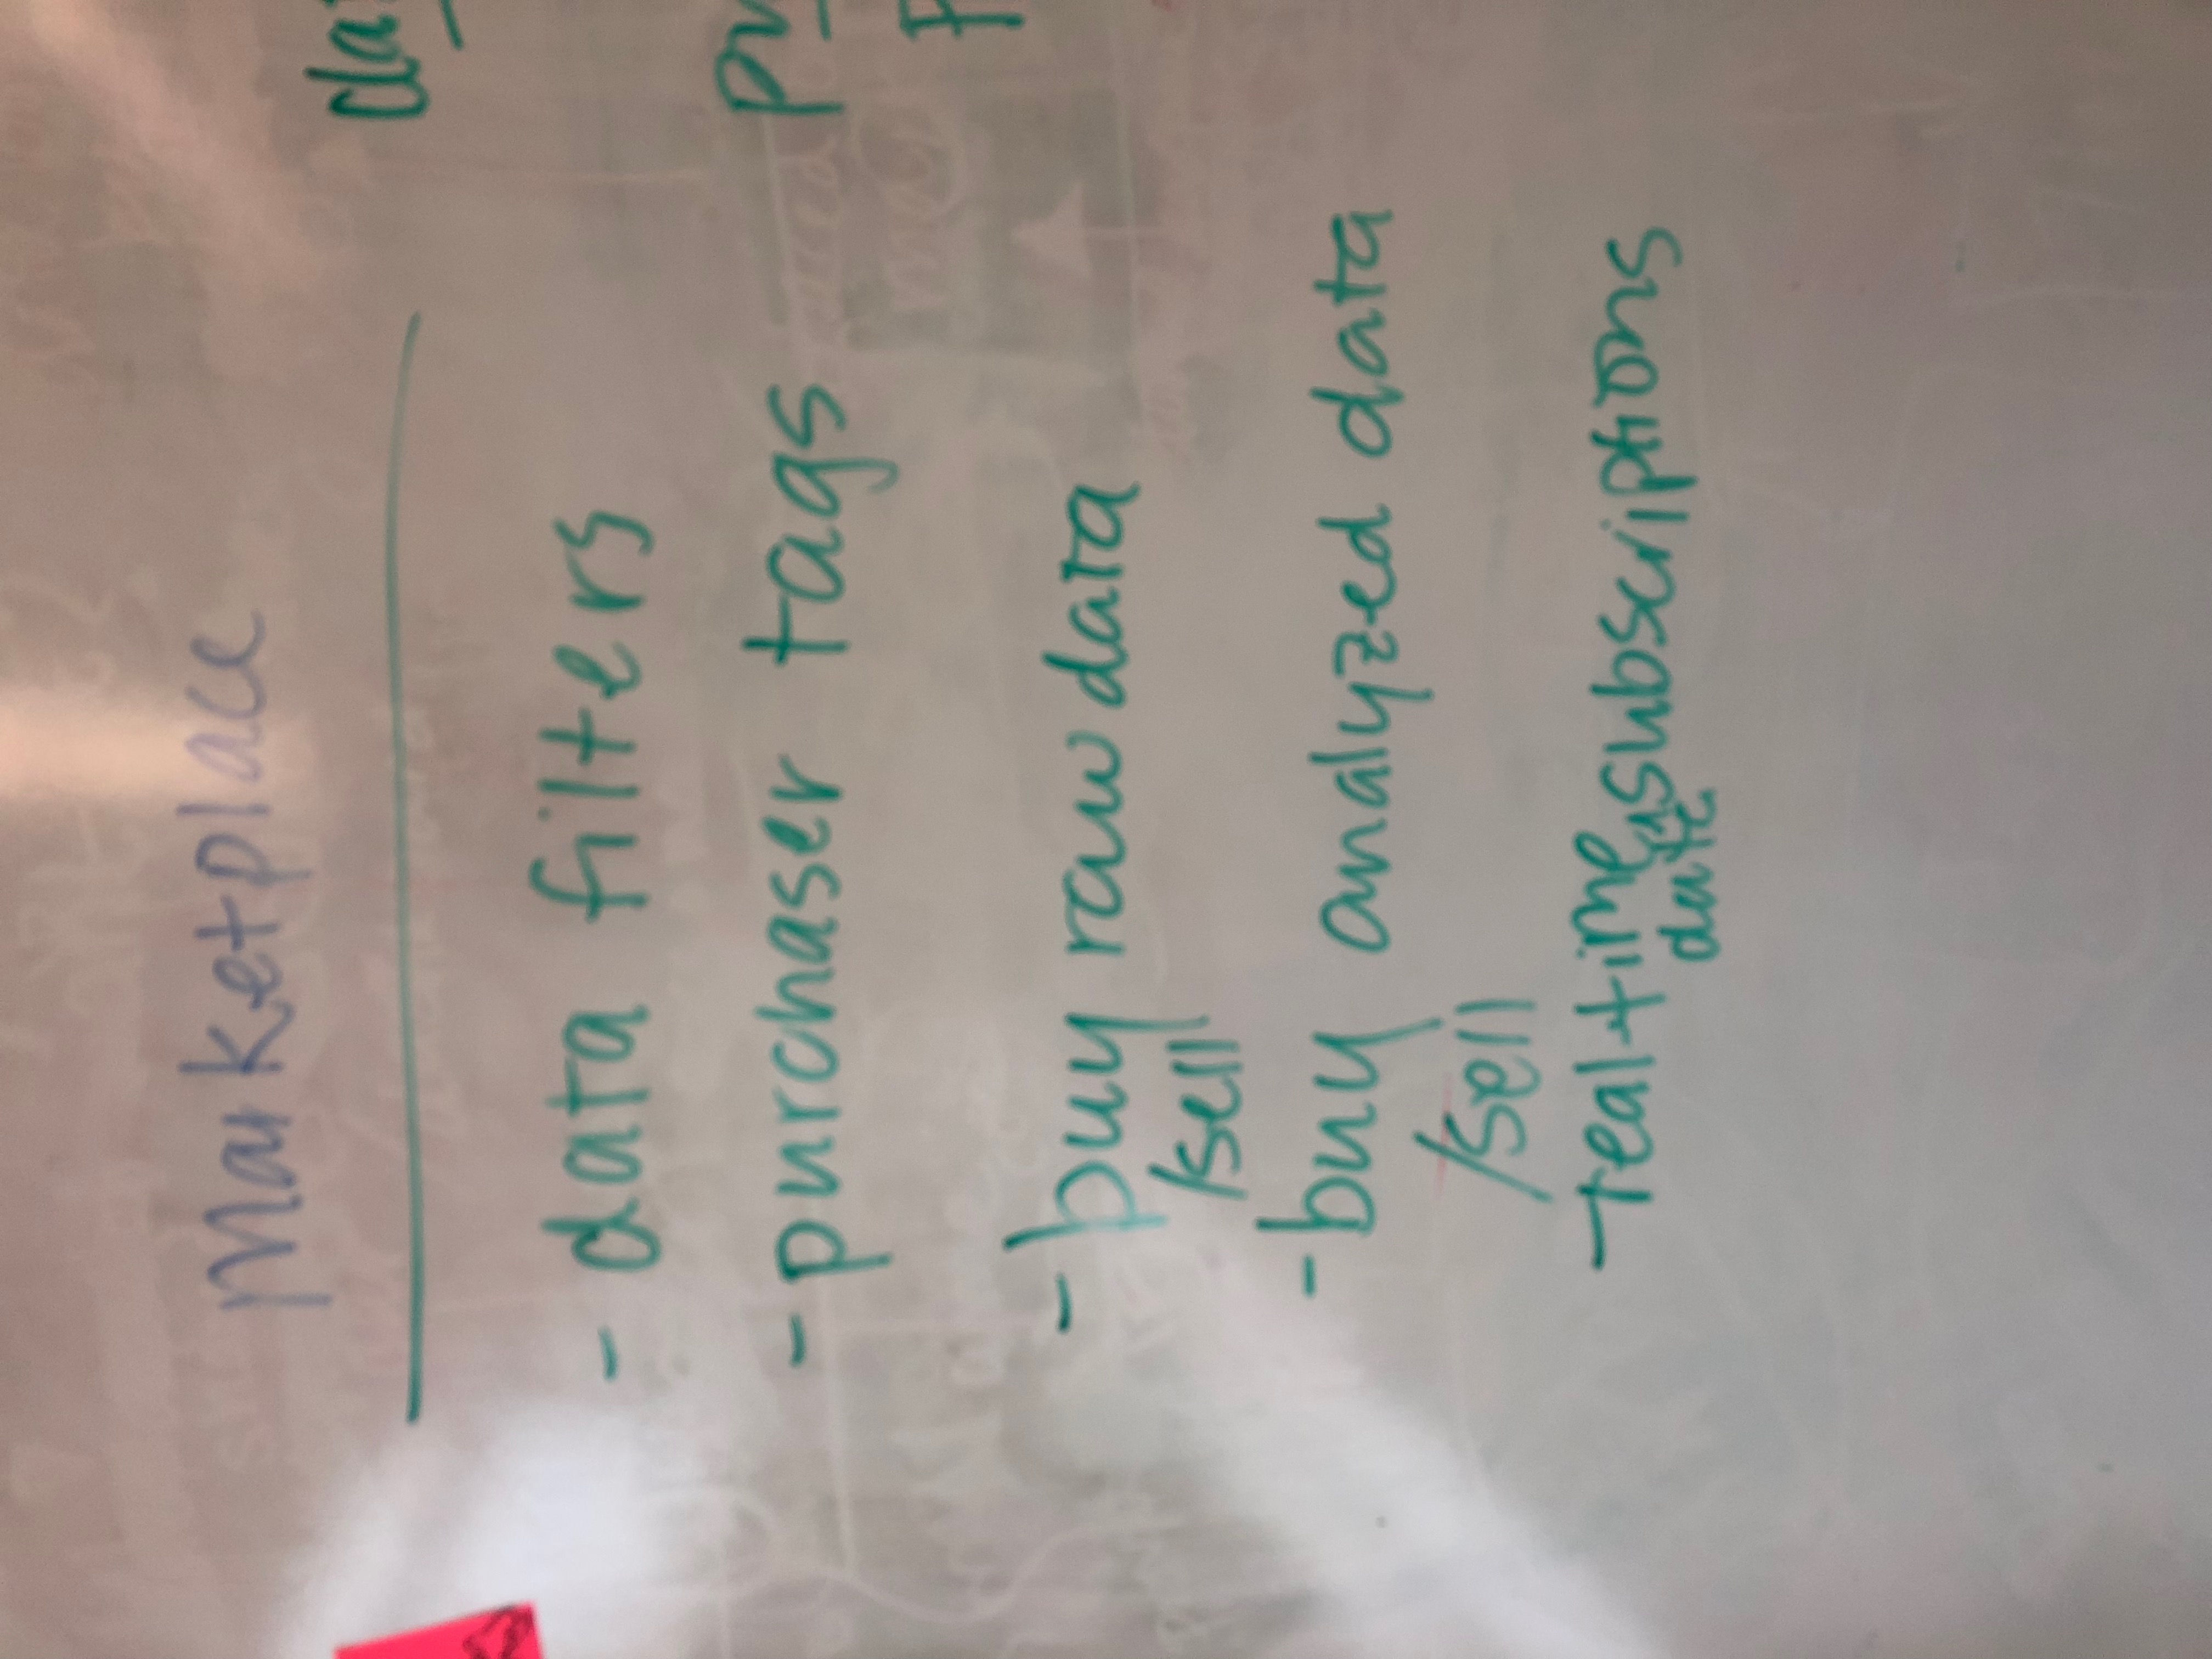 Marketplace
- data filters
- purchaser tags
- buy raw data
/sell
- buy analyzed data
/sell
- real-time subscriptions
data